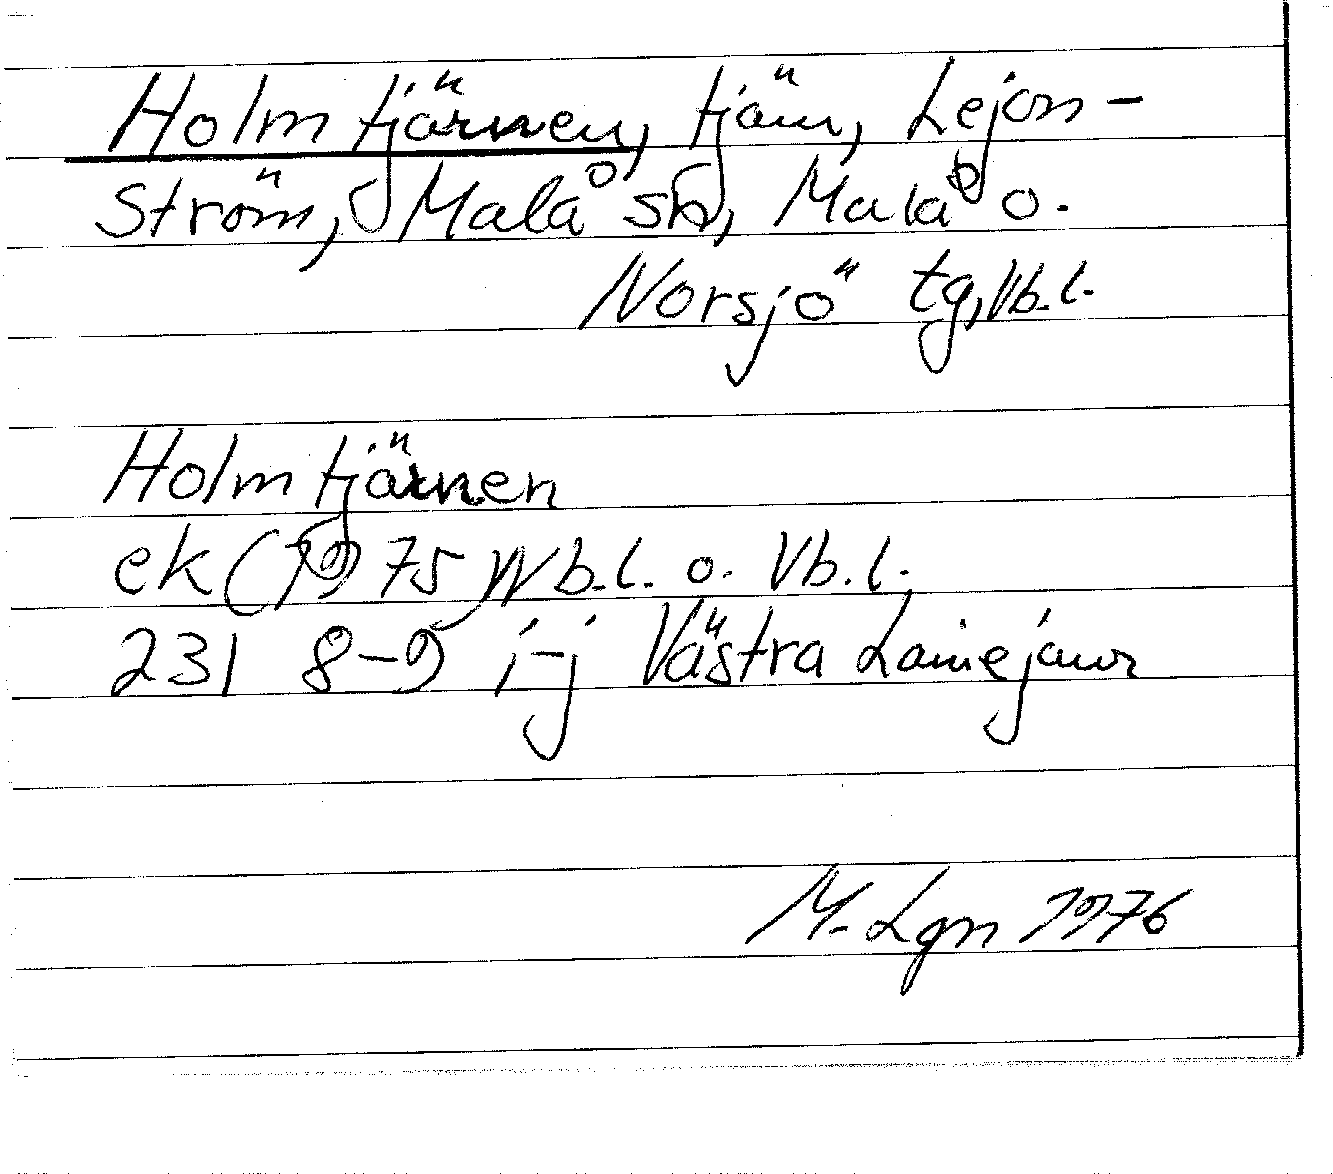 Holmtjärnen, tjärn, Lejon-
ström, Malå sn, Malå o.
Norsjö tg, Vb.l.
Holmtjärnen
ek (1975) Nb.l. o. Vb.l.
231 8-9 i-j Västra Lainejaur
M. Lgn 1976